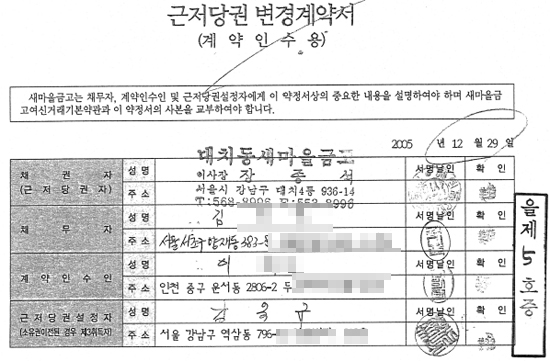 근저당권 변경계약서
(계 약 인 수 용)
새마을금고는 채무자, 계약인수인 및 근저당권설정자에게 이 약정서상의 중요한 내용을 설명하여야 하며 새마을금
고여신거래기본약관과 이 약정서의 사본을 교부하여야 합니다.
2005 년 12 월 29 일
채 권 자
(근 저 당 권 자)
성 명
대치동새마을금고
이사장 장 종 석
서명날인
확 인
주 소
서울시 강남구 대치4동 936-14
T:568-8996 F:553-8996
채 무 자
성 명
김
서명날인
확 인
주 소
서울 서초구 양재동 383-
계 약 인 수 인
성 명
이
서명날인
확 인
주 소
인천 중구 운서동 2806-2 두
근저당권설정자
(소유권이전된 경우 제3취득자)
성 명
서명날인
확 인
주 소
서울 강남구 역삼동 796-
을제 5 호증